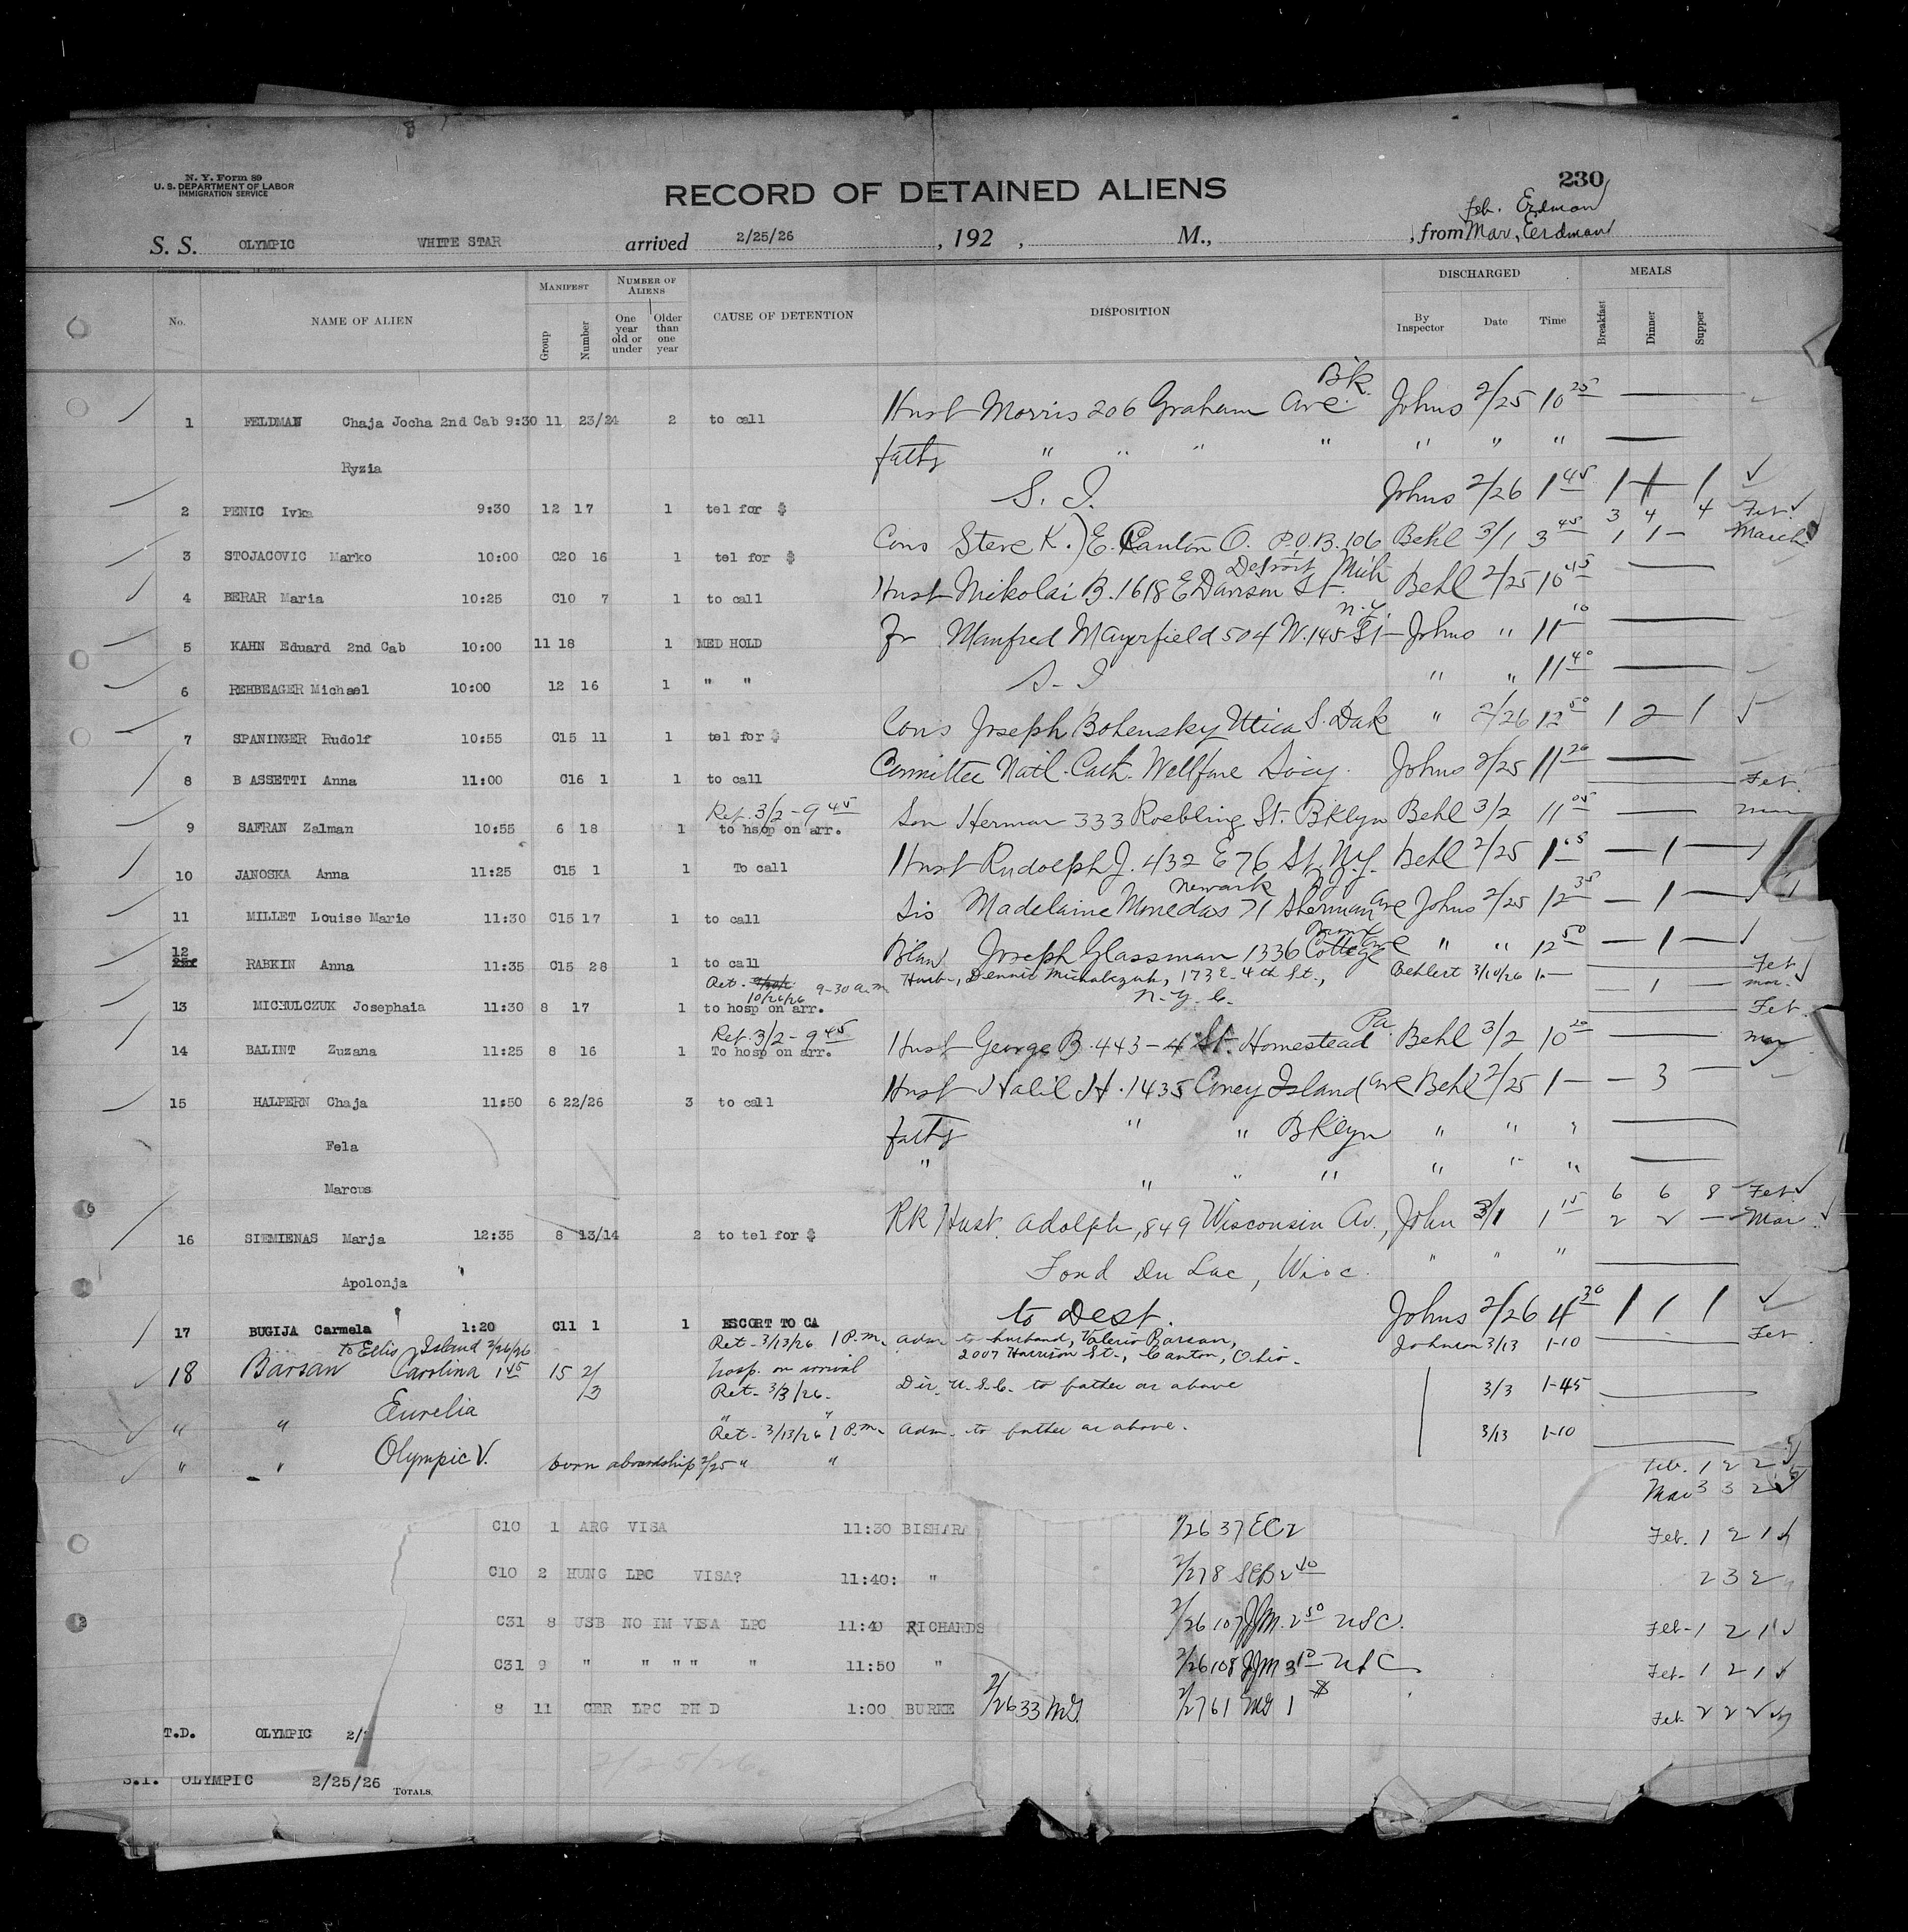 N. Y. Form 89
U. S. DEPARTMENT OF LABOR
IMMIGRATION SERVICE
RECORD OF DETAINED ALIENS
230
Feb. Erdman
S. S. OLYMPIC WHITE STAR arrived 2/25/26, 192 , M., , from Mar, Erdman
No. NAME OF ALIEN MANIFEST Group Number NUMBER OF ALIENS One year old or under Older than one year CAUSE OF DETENTION DISPOSITION DISCHARGED By Inspector Date Time MEALS Breakfast Dinner Supper
1 FELDMAN Chaja Jocha 2nd Cab 9:30 11 23/24 2 to call Husb Morris 206 Graham Ave. Bk. Johns 2/25 10 25
Ryzia fath " " " " " " "
2 PENIC Ivka 9:30 12 17 1 tel for $ S. I. Johns 2/26 1 45 1 1 1
3 4 4 Feb.
3 STOJACOVIC Marko 10:00 C20 16 1 tel for $ Cons Steve K.) E. Canton O. P.O.B. 106 Behl 3/1 3 45 1 1 - March
4 BERAR Maria 10:25 C10 7 1 to call Husb Nikolai B. 1618 E Davison St. Detroit Mich Behl 2/25 10 45
5 KAHN Eduard 2nd Cab 10:00 11 18 1 MED HOLD Fr Manfred Mayerfield 504 W. 145 St N.Y. Johns " 11 10
6 REHBEAGER Michael 10:00 12 16 1 " " S. I " " 11 40
7 SPANINGER Rudolf 10:55 C15 11 1 tel for $ Cons Joseph Bohensky Utica S. Dak " 2/26 12 50 1 2 1
8 B ASSETTI Anna 11:00 C16 1 1 to call Committee Natl. Cath. Wellfare Socy. Johns 2/25 11 20
Feb.
Ret. 3/2 - 9 45
9 SAFRAN Zalman 10:55 6 18 1 to hsop on arr. Son Herman 333 Roebling St. Bklyn Behl 3/2 11 05 mar
10 JANOSKA Anna 11:25 C15 1 1 To call Husb Rudolph J. 432 E 76 St. N.Y. Behl 2/25 1 05 - 1 -
11 MILLET Louise Marie 11:30 C15 17 1 to call Sis Madelaine Monedas 71 Sherman Ave Newark N.J. Johns 2/25 12 35 - 1 -
12 RABKIN Anna 11:35 C15 28 1 to call Joseph Glassman 1336 College Ave " " 12 50 - 1 -
Feb
Ret. 10/26/26 9-30 a.m. Husb., Dennis Michalczuk, 173 E. 4th St., Behlert 3/10/26 1- - 1 - mar.
13 MICHULCZUK Josephaia 11:30 8 17 1 to hosp on arr. N. Y. C.
Feb.
Ret. 3/2 - 9 45
14 BALINT Zuzana 11:25 8 16 1 To hosp on arr. Husb George B. 443 - 4 St. Homestead Pa Behl 3/2 10 20 mar
15 HALPERN Chaja 11:50 6 22/26 3 to call Husb Halil H. 1435 Coney Island Ave Behl 2/25 1- - 3 -
Fela fath " " Bklyn " " "
Marcus " " " " " " "
6 6 8 Feb
16 SIEMIENAS Marja 12:35 8 13/14 2 to tel for $ RR Husb. Adolph, 849 Wisconsin Av., John 3/1 1 15 2 2 - Mar.
Apolonja Fond Du Lac, Wisc. " " "
17 BUGIJA Carmela 1:20 C11 1 1 ESCORT TO CA to Dest. Johns 2/26 4 30 1 1 1
to Ellis Island 2/26/26 Ret. 3/13/26 1 P.m. adm. to husband, Valerio Barsan, Johnson 3/13 1-10 Feb
2007 Harrison St., Canton, Ohio.
18 Barsan Carolina 1 45 15 2/3 hosp. on arrival
Ret. 3/3/26. Dir. U.S.C. to father as above 3/3 1-45
" " Eurelia " "
Ret. 3/13/26 1 P.m. adm. to father as above. 3/13 1-10
" " Olympic V. born aboardship 2/25 " "
Feb. 1 2 2
Mar 3 3 2
C10 1 ARG VISA 11:30 BISHARA 2/26 37 EC2 Feb. 1 2 1
C10 2 HUNG LPC VISA? 11:40: " 2/27 8 SEB 2 40 2 3 2
C31 8 USB NO IM VISA LPC 11:40 RICHARDS 2/26 107 JJM. 2 50 USC. Feb. 1 2 1
C31 9 " " " " " 11:50 " 2/26 108 JJM 3 10 USC Feb. 1 2 1
8 11 GER LPC PH D 1:00 BURKE 2/26 33 MG. 2/27 61 MG 1 Feb. 2 2 2
T.D. OLYMPIC 2/2
2/25/26.
S.I. OLYMPIC 2/25/26 TOTALS